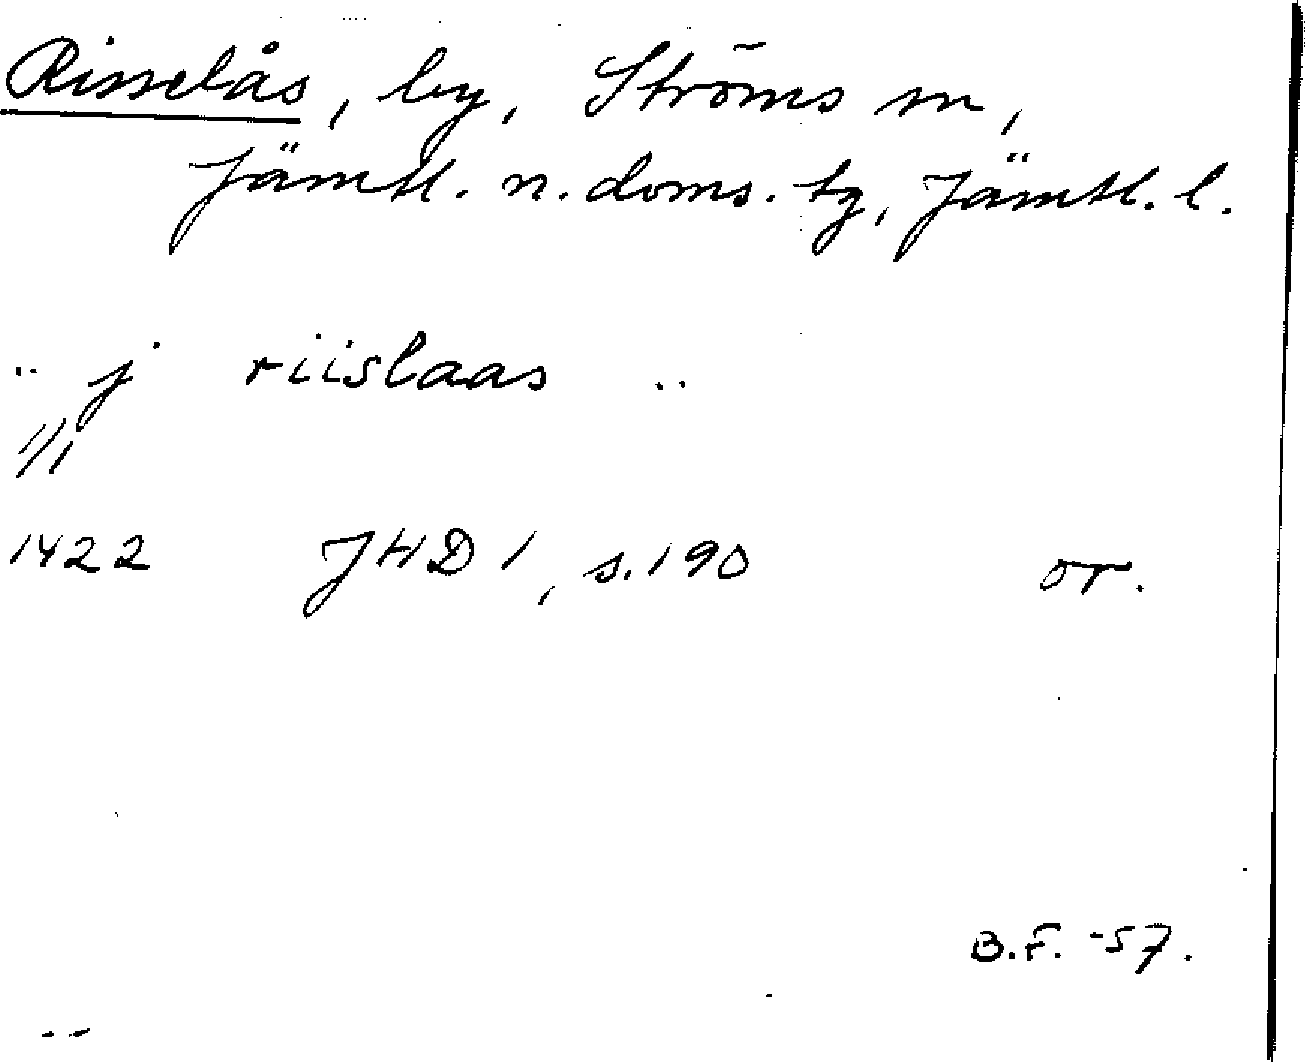 Risselås, by, Ströms sn,
Jämtl. n. doms. tg, Jämtl. l.
.. j riislaas ..
1/1
1422 JHD 1, s. 190 or.
B.F. -57.